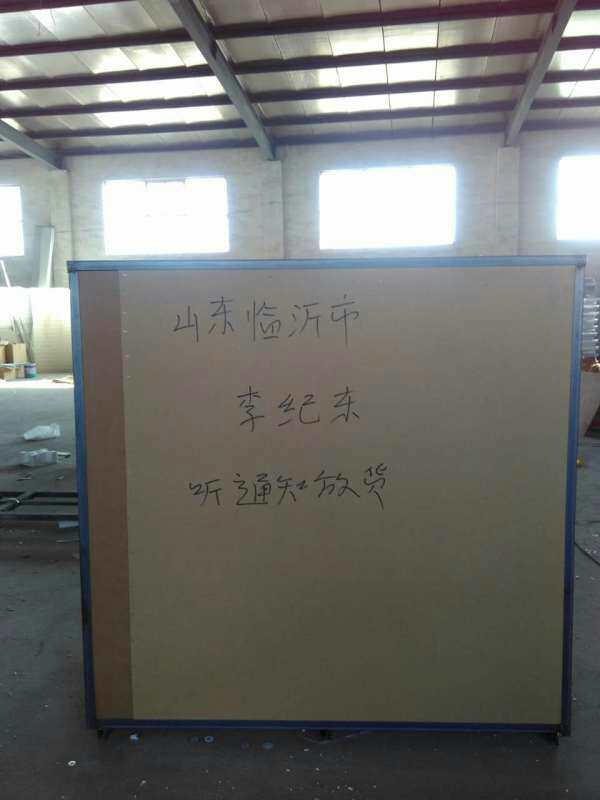 山东临沂市
李纪东
听通知放货